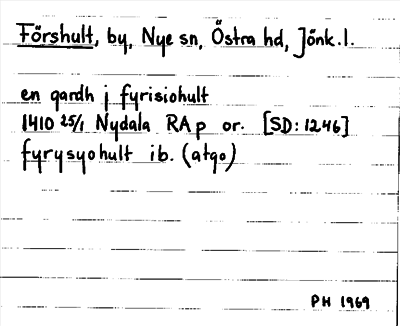 Förshult, by, Nye sn, Östra hd, Jönk. l.
en gardh j fyrisiohult
1410 25/1 Nydala RAp or. [SD: 1246]
fyrysyohult ib. (atgo)
PH 1969